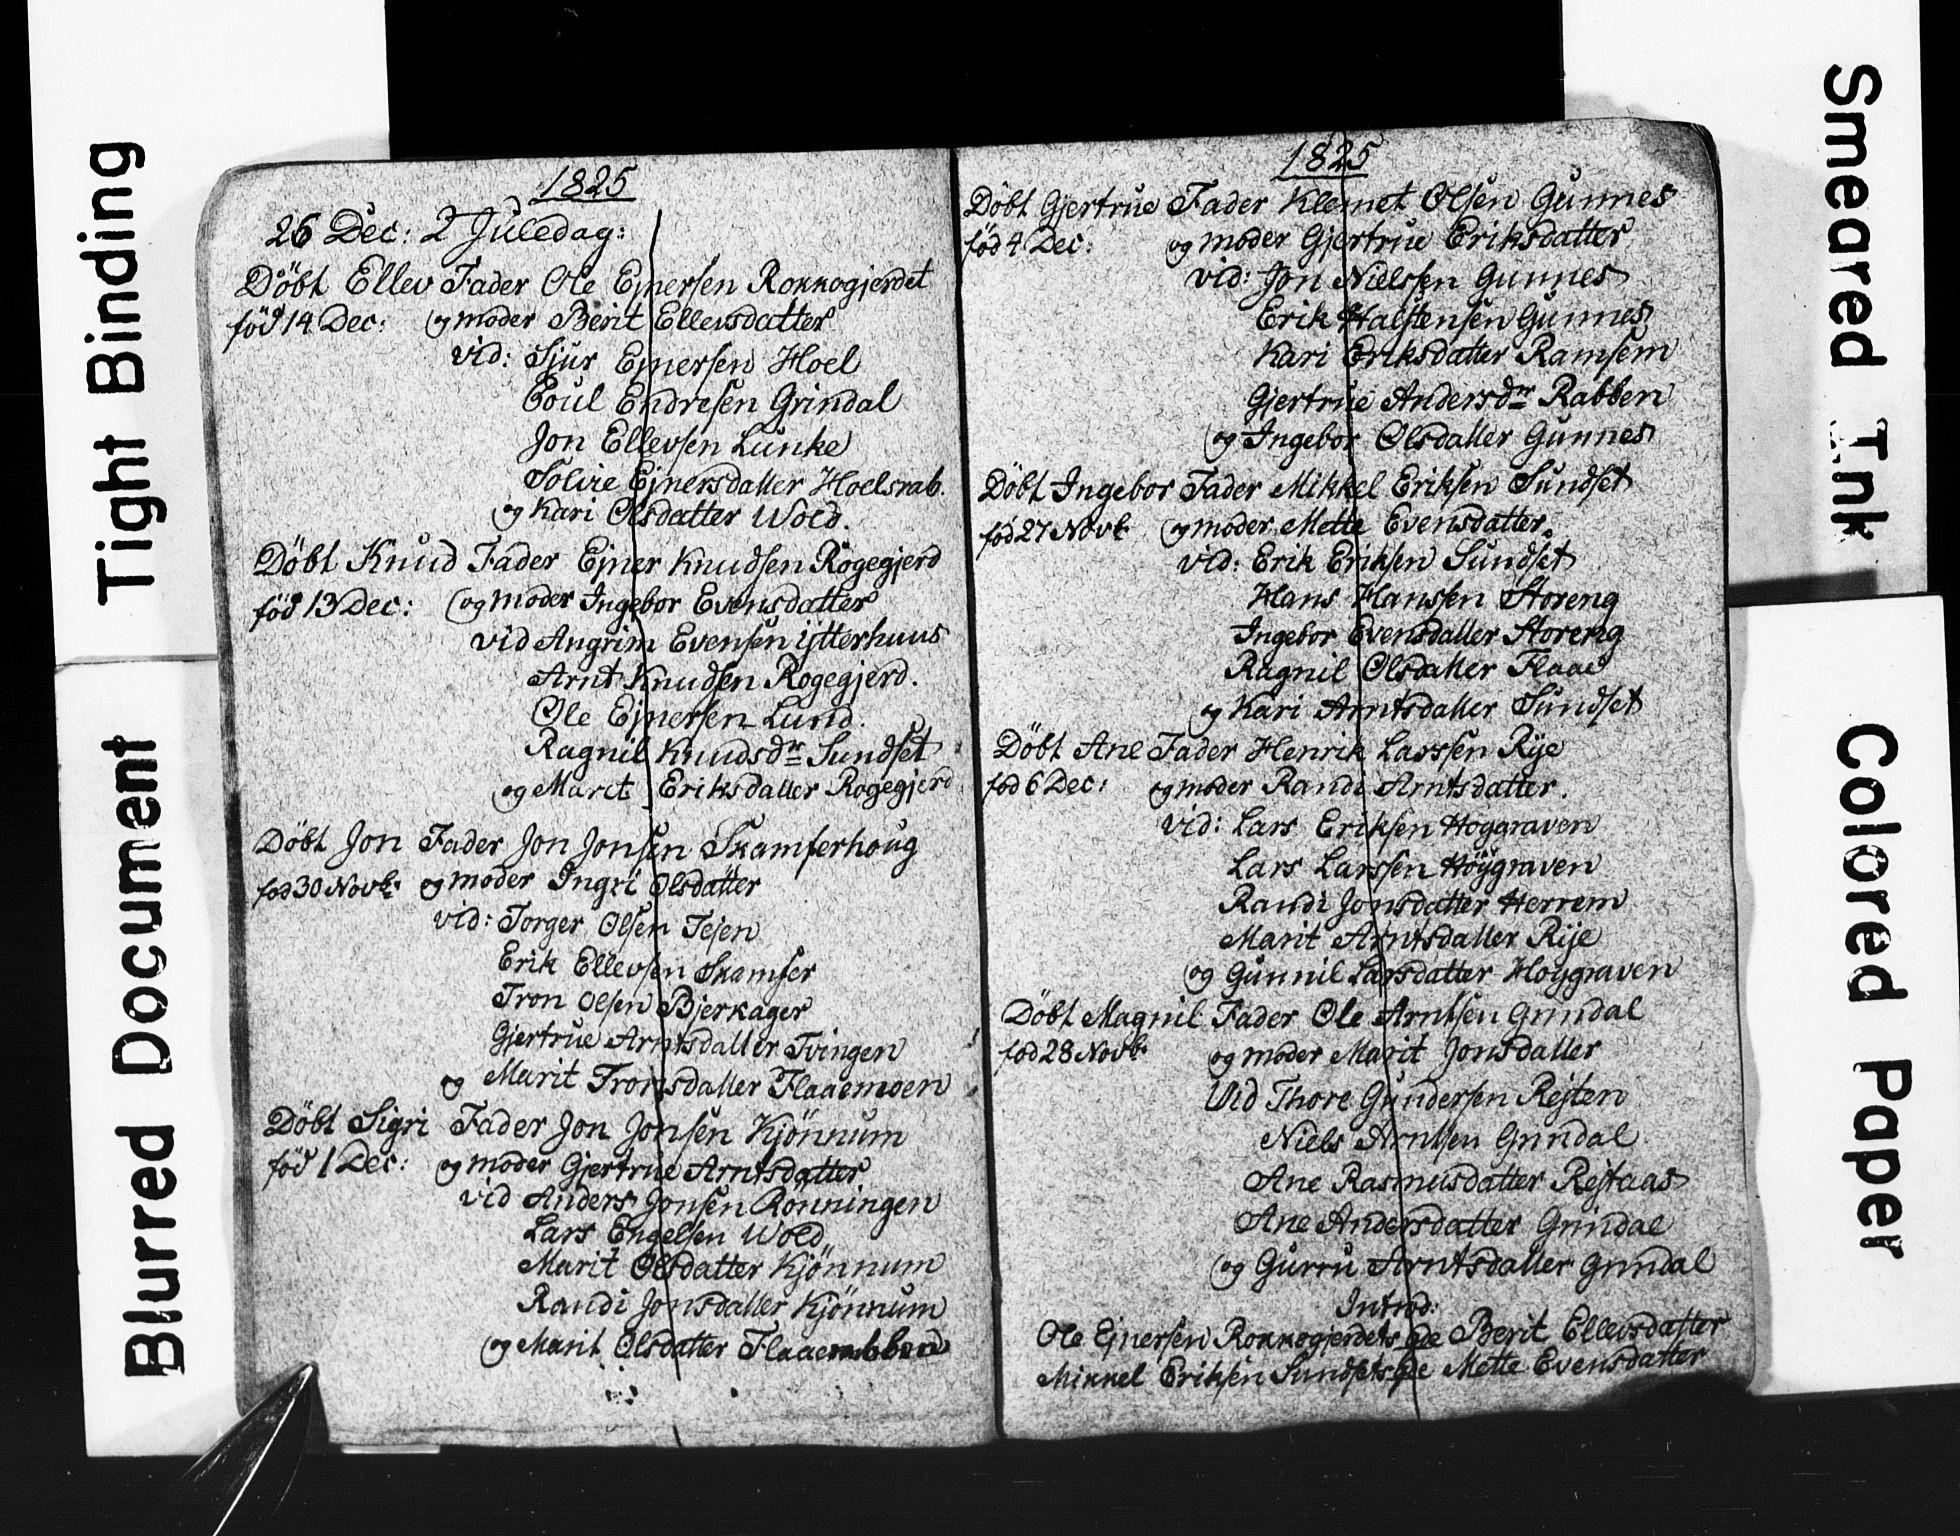 Tight Binding
Blurred Document
1825
26 Dec: 2 Juledag:
Döbt Ellev Fader Ole Ejnersen Rokkogjerdet
föd 14 Dec: og moder Berit Ellevsdatter
vid: Sjur Ejnersen Hoel
Poul Endresen Grindal
Jon Ellevsen Lunke
Solvie Ejnersdatter Hoelsrab.
og Kari Olsdatter Wold.
Döbt Knud Fader Ejner Knudsen Rogegjerd
föd 13 Dec: og moder Ingebor Evensdatter
vid Angrim Evensen Ytterhuus
Arnt Knudsen Rogegjerd.
Ole Ejnersen Lund.
Ragnil Knudsdr Sundset
og Marit Eriksdatter Rogegjerd
Döbt Jon Fader Jon Jonsen Skamferhoug
fod 30 Novb: og moder Ingri Olsdatter
vid: Torger Olsen Tejen
Erik Ellevsen Skamfer
Tron Olsen Bjerkager
Gjertrue Arntsdatter Tvingen
og Marit Tronsdatter Flaaemoen
Döbt Sigri Fader Jon Jonsen Kjönnum
föd 1 Dec: og moder Gjertrue Arntsdatter
vid Anders Jonsen Rönningen
Lars Engelsen Wold
Marit Olsdatter Kjönnum
Randi Jonsdatter Kjönnum
og Marit Olsdatter
1825
Döbt Gjertrue Fader Klemet Olsen Gunnes
föd 4 Dec: og moder Gjertrue Eriksdatter
vid: Jon Nielssen Gunnes
Erik Halstensen Gunnes
Kari Eriksdatter Ramsem
Gjertrue Andersdr Rabben
og Ingebor Olsdatter Gunnes
Döbt Ingebor Fader Mikkel Eriksen Sundset
föd 27 Novb: og moder Mette Evensdatter.
vid: Erik Eriksen Sundset
Hans Hanssen Storeng
Ingebor Evensdatter Storeng
Ragnil Olsdatter Flaae
og Kari Arntsdatter Sundset
Döbt Ane Fader Henrik Larssen Rye
fod 6 Dec: og moder Randi Arntsdatter.
vid: Lars Eriksen Hoggraven
Lars Larssen Höygraven
Randi Jonsdatter Herrem
Marit Arntsdatter Rye
og Gunnil Larsdatter Hoygraven
Döbt Magnil Fader Ole Arntsen Grindal
fod 28 Novb: og moder Marit Jonsdatter
Vid Thore Gundersen Rejten
Niels Arntsen Grindal
Ane Rasmusdatter Rejtaas
Ane Andersdatter Grindal
og Gurru Arntsdatter Grindal
Introd:
Ole Ejnersen Rokkogjerdets Qde Berit Ellevsdatter
Mikkel Eriksen Sundsets Qde Mette Evensdatter
Smeared Ink
Colored Paper